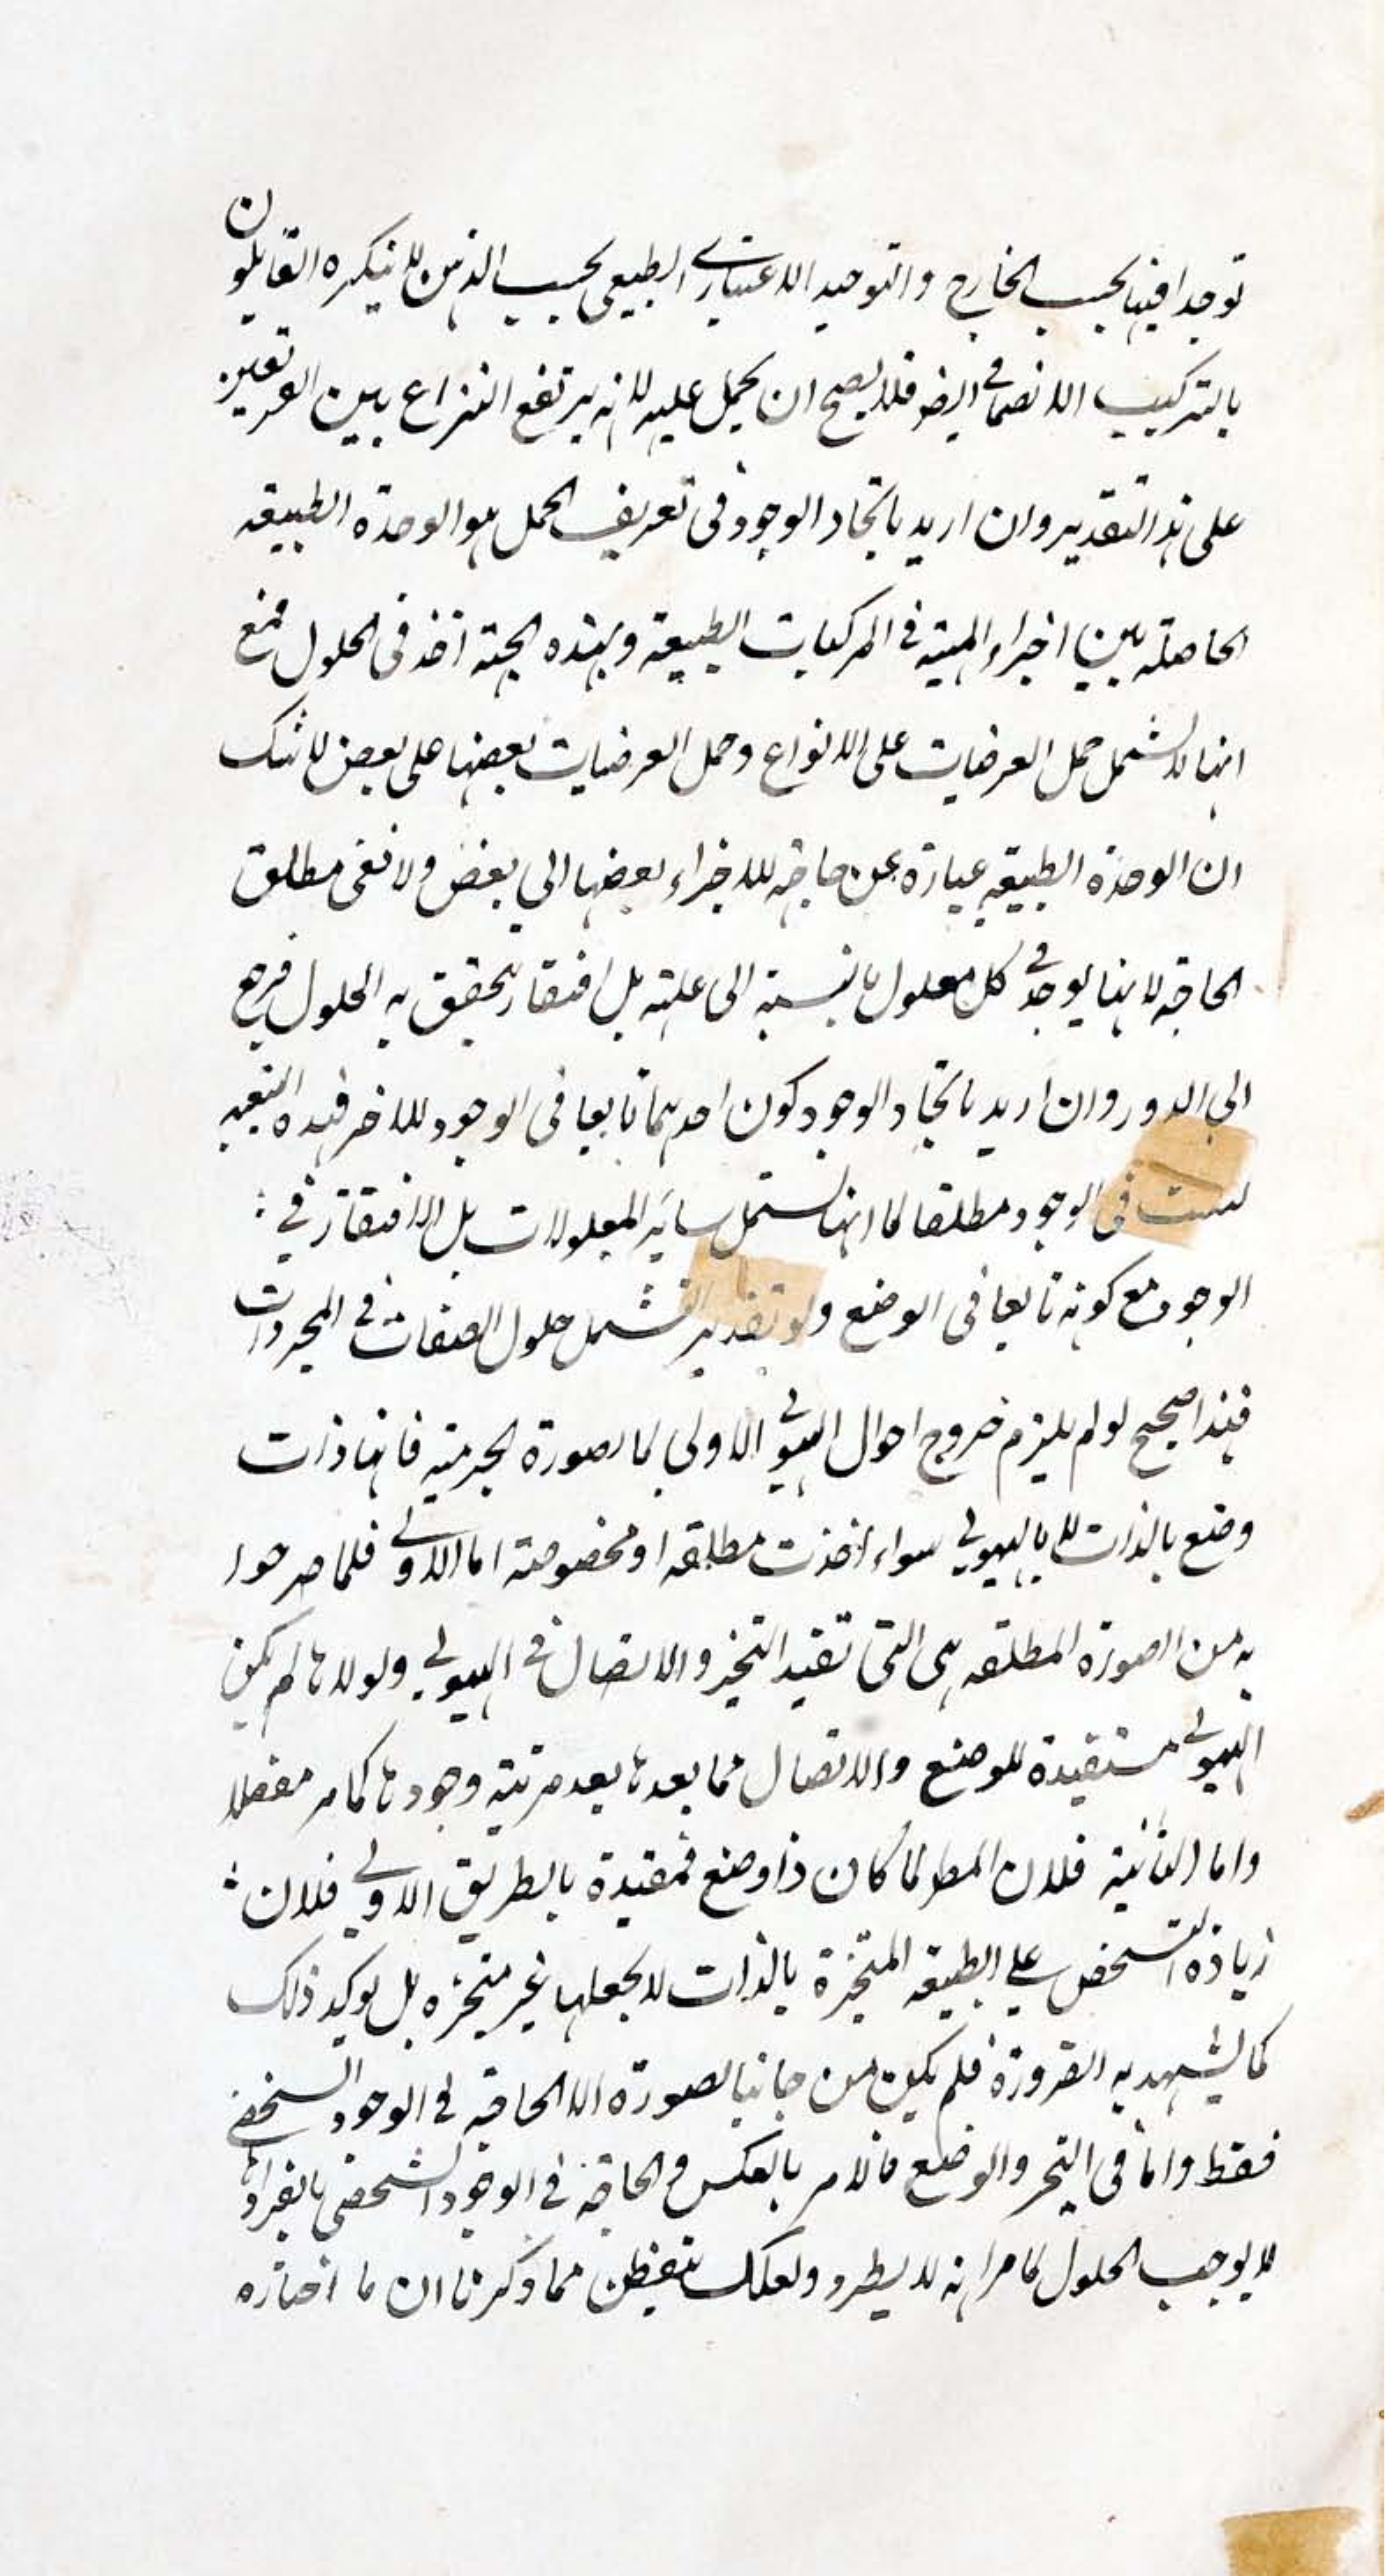 توجد افيها بحسب الخارج والتوحيد الاعتباري الطبيعي بحسب الذهن لا ينكره القايلون
بالتركيب الانضمامي ايضا فلا يصح ان يحمل عليه لانه يرتفع النزاع بين الفريقين
على هذا التقدير وان اريد باتحاد الوجود في تعريف الحمل هو الوحدة الطبيعة
الحاصلة بين اجزاء المهية في المركبات الطبيعة وبهذه الجهة اخذ في الحلول فمع
انها لا يشمل حمل العرضيات على الانواع وحمل العرضيات بعضها على بعض لا شك
ان الوحدة الطبيعة عبارة عن حاجة للاجزاء بعضها الي بعض ولا نعني مطلق
الحاجة لانها يوجد في كل معلول بالنسبة الى علته بل افتقار يتحقق به الحلول فيرجع
الي الدور وان اريد باتحاد الوجود كون احدهما تابعا في الوجود للاخر فهذه التبعية
ليست في الوجود مطلقا لما انها تشمل ساير المعلولات بل الافتقار في
الوجود مع كونه تابعا في الوضع ولو تقدير يشمل حلول الصفات في المجردات
فهذا صحيح لو لم يلزم خروج احوال الهيولي الاولي كالصورة الجرمية فانها ذات
وضع بالذات لا بالهيولي سواء اخذت مطلقة او مخصوصة اما الاولي فلما صرحوا
به من الصورة المطلقة هي التي تفيد التحيز والاتصال في الهيولي ولولاها لم يكن
الهيولي مستفيدة للوضع والاتصال مما بعدها بعد مرتبة وجودها كما مر مفصلا
واما الثانية فلان المط لما كان ذا وضع فمقيدة بالطريق الاولي فلان
زيادة التشخص علي الطبيعة المتحيزة بالذات لا يجعلها غير متحيزه بل يوكيد ذلك
كما يشهد به الضرورة فلم يكن من جانب الصورة الا الحاجة في الوجود الشخصي
فقط واما في التحيز والوضع فالامر بالعكس والحاجة في الوجود الشخصي بانفرادها
لا يوجب الحلول كما مر انه لا يطرد ولعلك تتفطن مما ذكرنا ان ما اختاره